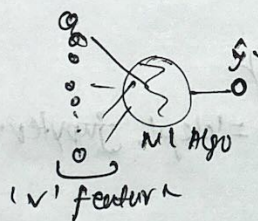 ŷ
ML Algo
'n' feature